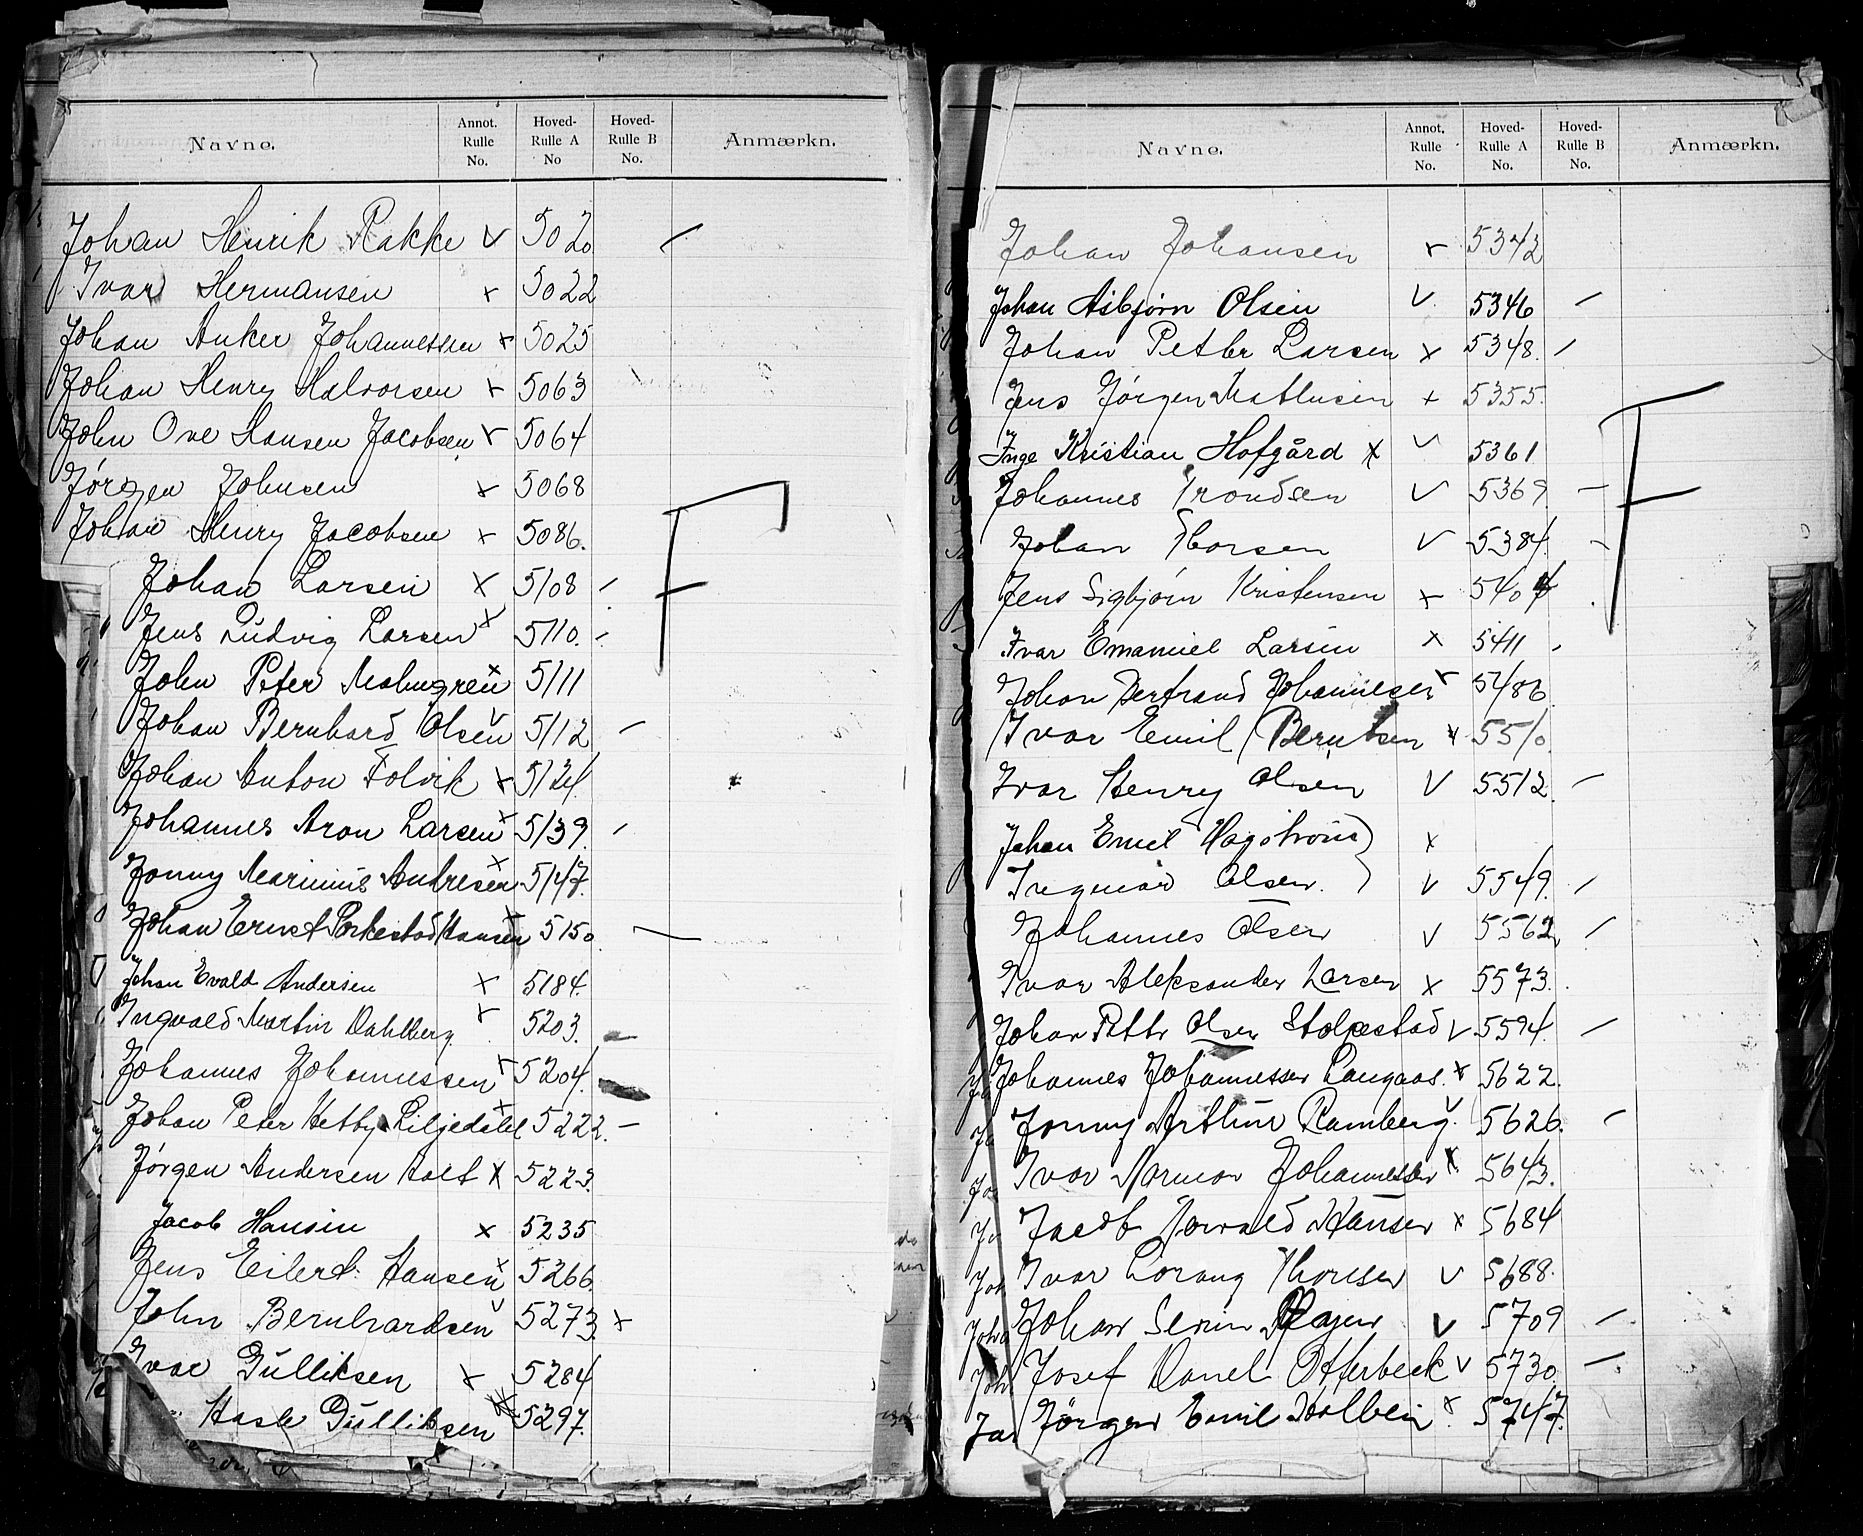 Navne. Annot. Rulle No. Hoved-Rulle A No Hoved-Rulle B No. Anmærkn.
Johan Henrik Rakke v 5020
Ivar Hermansen x 5022
Johan Anker Johannessen x 5025
Johan Henry Halvorsen x 5063
John Ove Hansen Jacobsen x 5064
Jörgen Johnsen x 5068
Johan Henry Jacobsen x 5086.
Johan Larsen x 5108 F
Jens Ludvig Larsen x 5110.
John Peter Malmgren x 5111
Johan Bernhard Olsen v 5112
Johan Anton Folvik x 5124
Johannes Aron Larsen x 5139.
Jonny Marinius Andresen x 5147.
Johan Ernst Hansen x 5150
Johan Evald Andersen x 5184.
Ingvald Martin Dahlberg x 5203.
Johannes Johannessen x 5204.
Johan Peter Liljedahl x 5222.
Jörgen Andersen Holt x 5223.
Jacob Hansen x 5235
Jens Eilert Hansen x 5266
John Bernhardsen v 5273 x
Ivar Gulliksen x 5284
Hasle Gulliksen x 5297.
Navne. Annot. Rulle No. Hoved-Rulle A No. Hoved-Rulle B No. Anmærkn.
Johan Johansen x 5342
Johan Asbjørn Olsen v 5346
Johan Peter Larsen x 5348.
Jens Jørgen Mathisen x 5355.
Inge Kristian Hofgård x v 5361
Johannes Trondsen v 5369 F
Johan Thorsen v 5384
Jens Sigbjørn Kristensen x 5404
Ivar Emanuel Larsen x 5411
Johan Bertrand Johannesen x 5486
Ivar Emil Berntsen x 5510
Ivar Henry Olsen v 5512
Johan Emil Hagstrøm x
Ingvar Olsen. v 5549.
Johannes Olsen v 5562
Ivar Aleksander Larsen x 5573.
Johan Petter Olsen Stolpestad v 5594.
Johannes Johannessen Langaas. x 5622.
Jonny Arthur Ramberg. v 5626.
Ivar Normar Johannessen x 5643.
Jacob Torvald Hansen x 5684
Ivar Lorang Thorsen v 5688.
Johan v 5709
Josef Daniel Otterbeck v 5730.
Jörgen Emil Holbein x 5747.